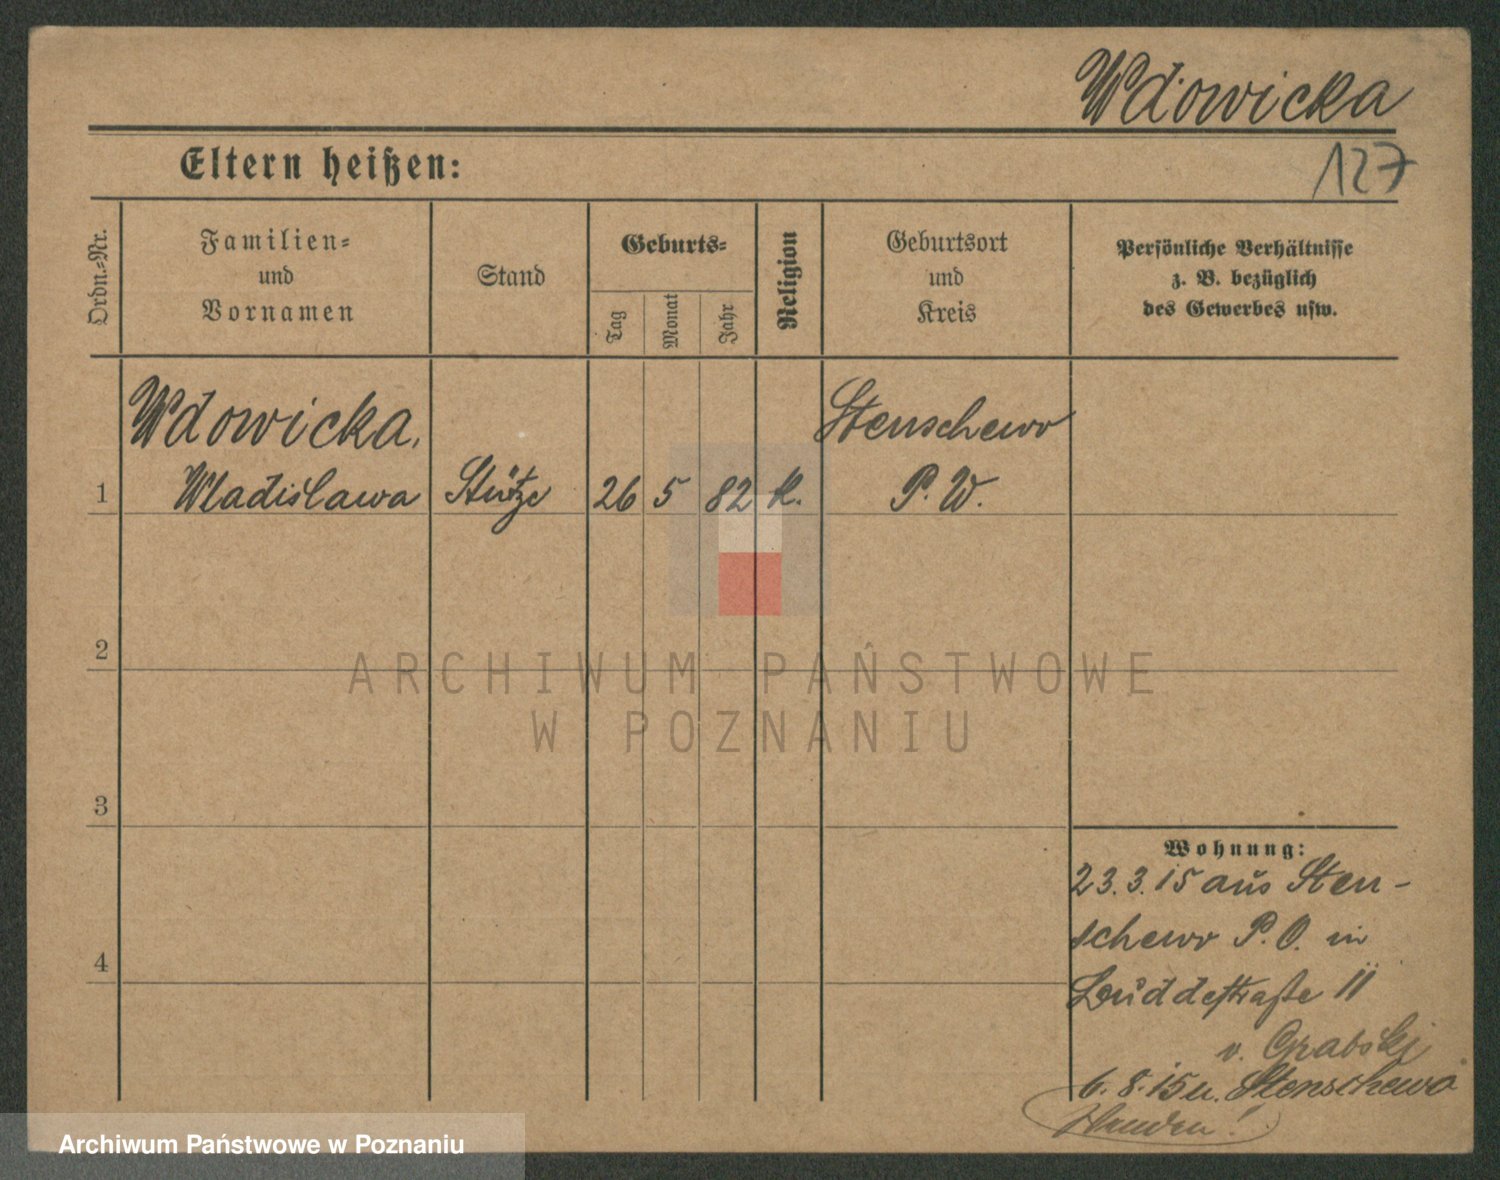 Wdowicka
Eltern heißen:
127
Ordn.-Nr.
Familien-
und
Vornamen
Stand
Geburts-
Tag
Monat
Jahr
Religion
Geburtsort
und
Kreis
Persönliche Verhältnisse
z. B. bezüglich
des Gewerbes usw.
Wdowicka,
Stenschewo
1
Wladislawa
Stütze
26
5
82
K.
P. W.
2
ARCHIWUM PAŃSTWOWE
W POZNANIU
3
Wohnung:
23.3.15 aus Sten-
schewo P. O. in
4
11
v. Grabski
6. 8. 15 n. Stenschewo
Archiwum Państwowe w Poznaniu